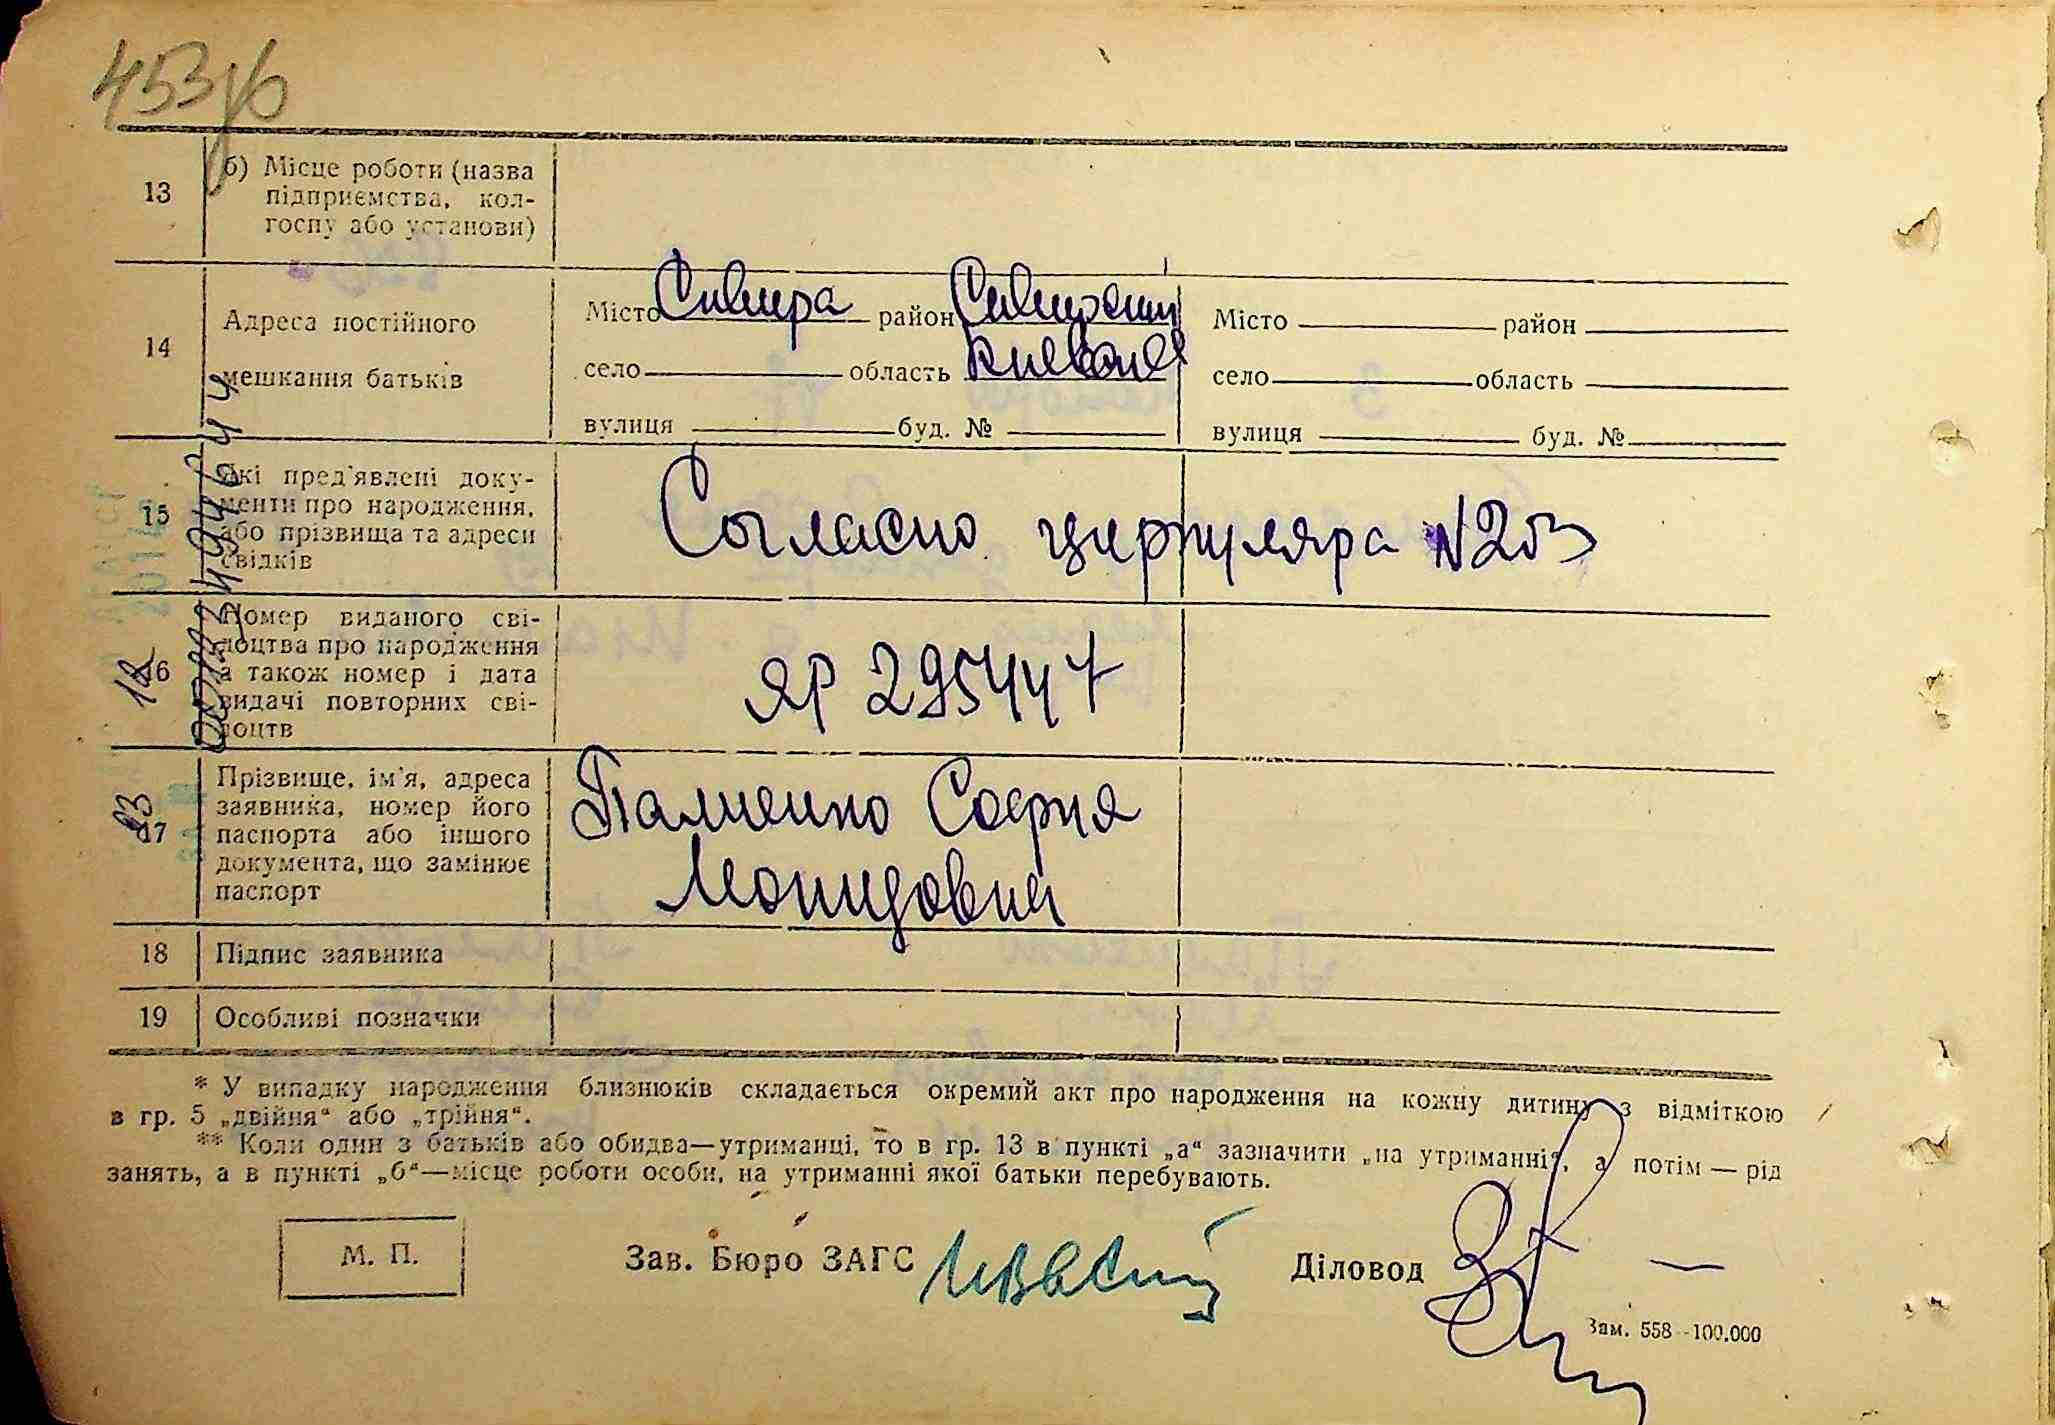 453
13
б) Місце роботи (назва
підприємства, кол-
госпу або установи)
14
Адреса постійного
мешкання батьків
Місто Сквира район Сквирский
село область Киевской
вулиця буд. №
Місто район
село область
вулиця буд. №
15
Які пред'явлені доку-
менти про народження,
або прізвища та адреси
свідків
Согласно циркуляра N203
16
Номер виданого сві-
доцтва про народження
а також номер і дата
видачі повторних сві-
доцтв
ЯР 295447
17
Прізвище, ім'я, адреса
заявника, номер його
паспорта або іншого
документа, що замінює
паспорт
София
Леонидовна
18 Підпис заявника
19 Особливі позначки
* У випадку народження близнюків складається окремий акт про народження на кожну дитину з відміткою
в гр. 5 „двійня“ або „трійня“.
** Коли один з батьків або обидва—утриманці, то в гр. 13 в пункті „а“ зазначити „на утриманні“, а потім — рід
занять, а в пункті „б“—місце роботи особи, на утриманні якої батьки перебувають.
М. П.
Зав. Бюро ЗАГС
Діловод
Зам. 558—100.000